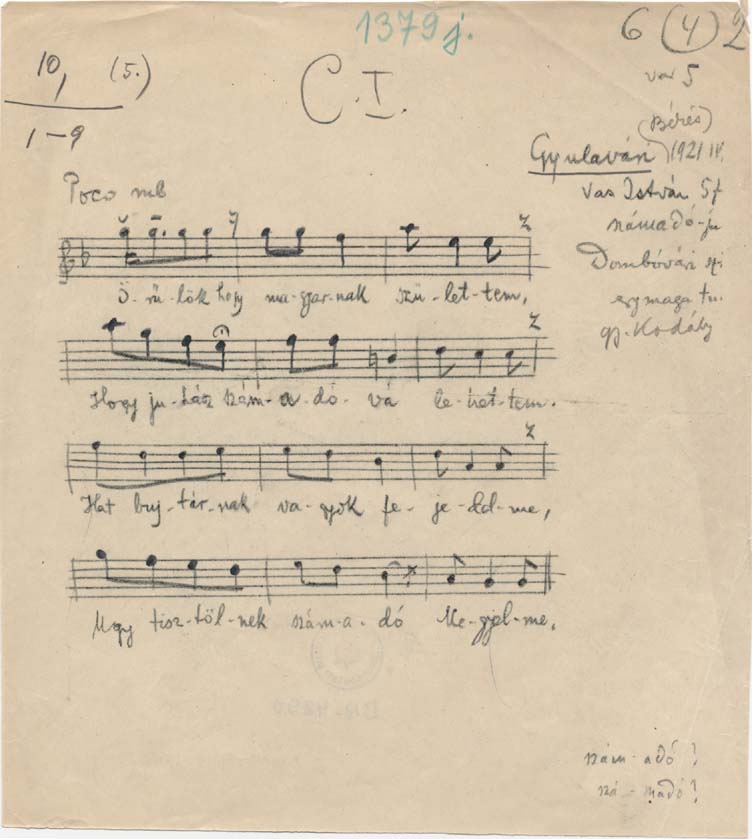 1379 j.
6 (4) 2
10, (5.)
1-9
C.I.
var 5
(Békés)
Gyulavári 1921 IV.
Vas István 57
számadó-ju
Dombóvári
egymaga
gy. Kodály
Poco rub
Ö-rü-lök hogy ma-gyar-nak szü-let-tem,
Hogy ju-hász szám-a-dó-vá le-het-tem.
Hat buj-tár-nak va-gyok fe-je-del-me,
Ugy tisz-töl-nek szám-a-dó Me-gyel-me,
szám-adó?
szá-madó?